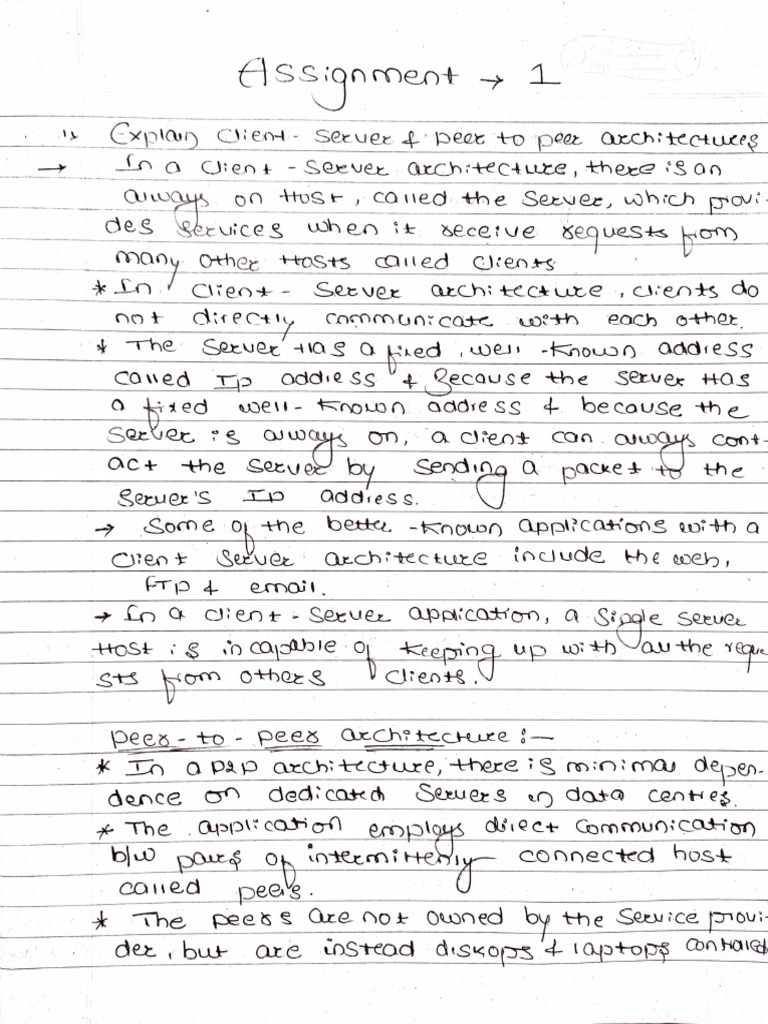 Assignment → 1
1) Explain Client - Server & peer to peer architectures
→ In a client - server architecture, there is an
always on Host, called the server, which provi-
des services when it receive requests from
many other Hosts called clients
* In client - server architecture, clients do
not directly communicate with each other.
* The server Has a fixed, well - known address
called Ip address & Because the server Has
a fixed well - known address & because the
server is always on, a client can always cont-
act the server by sending a packet to the
server's IP address.
→ Some of the better - known applications with a
Client Server architecture include the web,
FTP & email.
→ In a client - server application, a single server
Host is incapable of keeping up with all the reque
sts from others clients.
peer - to - peer architecture :-
* In a P2P architecture, there is minimal depen-
dence on dedicated servers in data centres.
* The application employs direct communication
b/w pairs of intermittenly connected host
called peers.
* The peers are not owned by the service provi-
der, but are instead diskops & laptops controlled